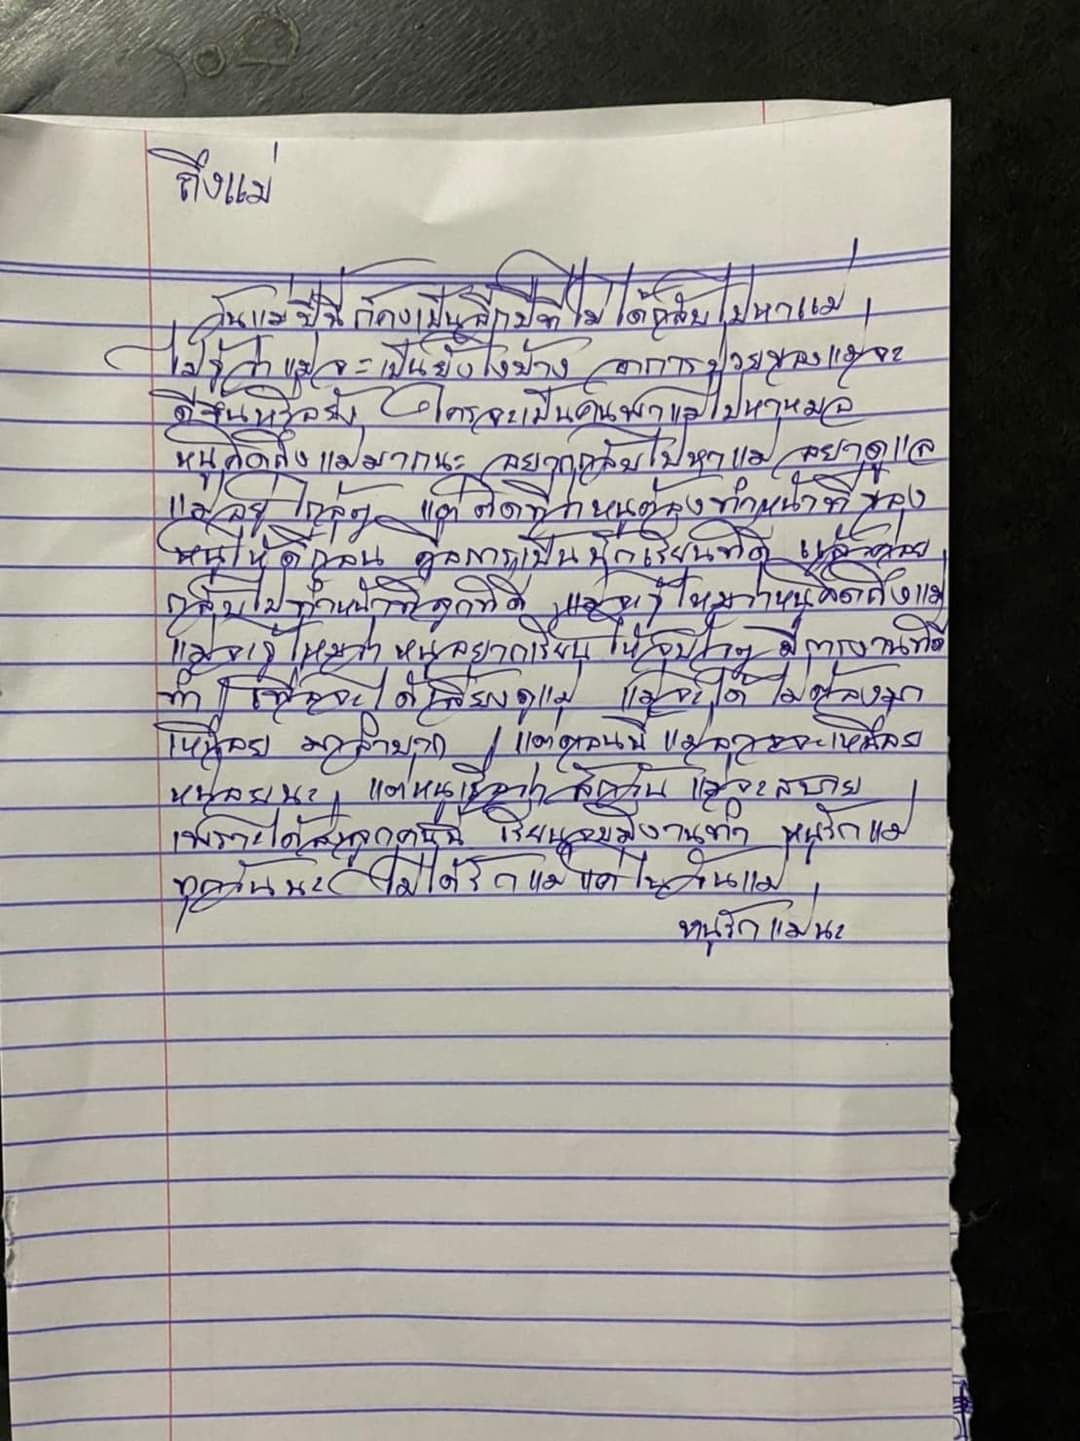 ถึงแม่
วันแม่ปีนี้ ก็คงเป็นอีกปีที่ไม่ได้กลับไปหาแม่
ไม่รู้ว่าแม่จะเป็นยังไงบ้าง อาการป่วยของแม่จะ
ดีขึ้นหรือยัง ใครจะเป็นคนพาแม่ไปหาหมอ
หนูคิดถึงแม่มากนะ อยากกลับไปหาแม่ อยากดูแล
แม่อยู่ใกล้ๆ แต่ติดที่ว่าหนูต้องทำหน้าที่ของ
หนูให้ดีก่อน คือการเป็นนักเรียนที่ดี แล้วค่อย
กลับไปทำหน้าที่ลูกที่ดี แม่จะรู้ไหมว่าหนูคิดถึงแม่
แม่จะรู้ไหมว่า หนูอยากเรียนให้จบไวๆ มีการงานที่ดี
ทำ เพื่อจะได้เลี้ยงดูแม่ แม่จะได้ไม่ต้องมา
เหนื่อย มาลำบาก แต่ตอนนี้ แม่อาจจะเหนื่อย
หน่อยนะ แต่หนูเชื่อว่า สักวัน แม่จะสบาย
เพราะได้ลูกคนนี้ เรียนจบมีงานทำ หนูรักแม่
ทุกวันนะ ไม่ได้รักแม่แค่ในวันแม่
หนูรักแม่นะ